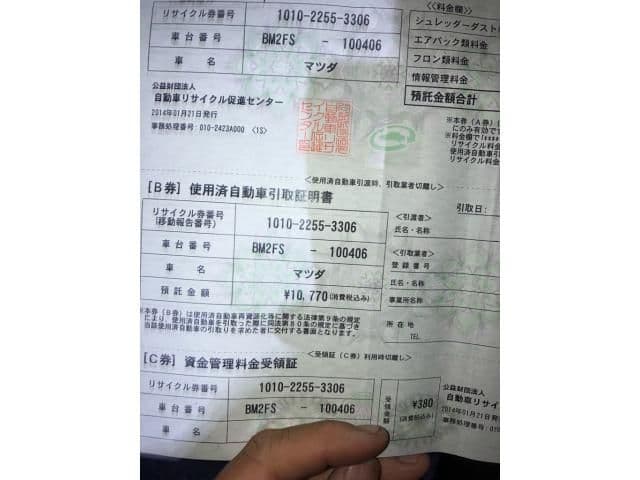 リサイクル券番号 1010-2255-3306
車台番号 BM2FS - 100406
車名 マツダ
公益財団法人
自動車リサイクル促進センター
2014年01月21日発行
事務処理番号:010-Z423A000 <1S>
<<料金欄>
シュレッダーダスト
エアバッグ類料金
フロン類料金
情報管理料金
預託金額合計
※本券（A券）は
にのみ有効です
リサイクル料金
使用済自動車引
リサイクル料金
<使用済自動車引渡時、引取業者切離し>
[B券] 使用済自動車引取証明書
引取日:
リサイクル券番号
(移動報告番号) 1010-2255-3306
車台番号 BM2FS - 100406
車名 マツダ
預託金額 ¥10,770(消費税込み)
<引渡者>
氏名・名称
<引取業者>
登録番号
氏名・名称
事業所名称
所在地
TEL
※本券（B券）は使用済自動車再資源化等に関する法律第9条の規定
により、使用済自動車を引取った際に同法第80条の規定に基づき
当該使用済自動車の引取りを求めた者に交付する書面となります。
<受領証（C券）利用時切離し>
[C券] 資金管理料金受領証
リサイクル券番号 1010-2255-3306
車台番号 BM2FS - 100406
車名
受領金額 ¥380
(消費税込み)
公益財団法人
自動車リサイ
2014年01月21日発
事務処理番号:010